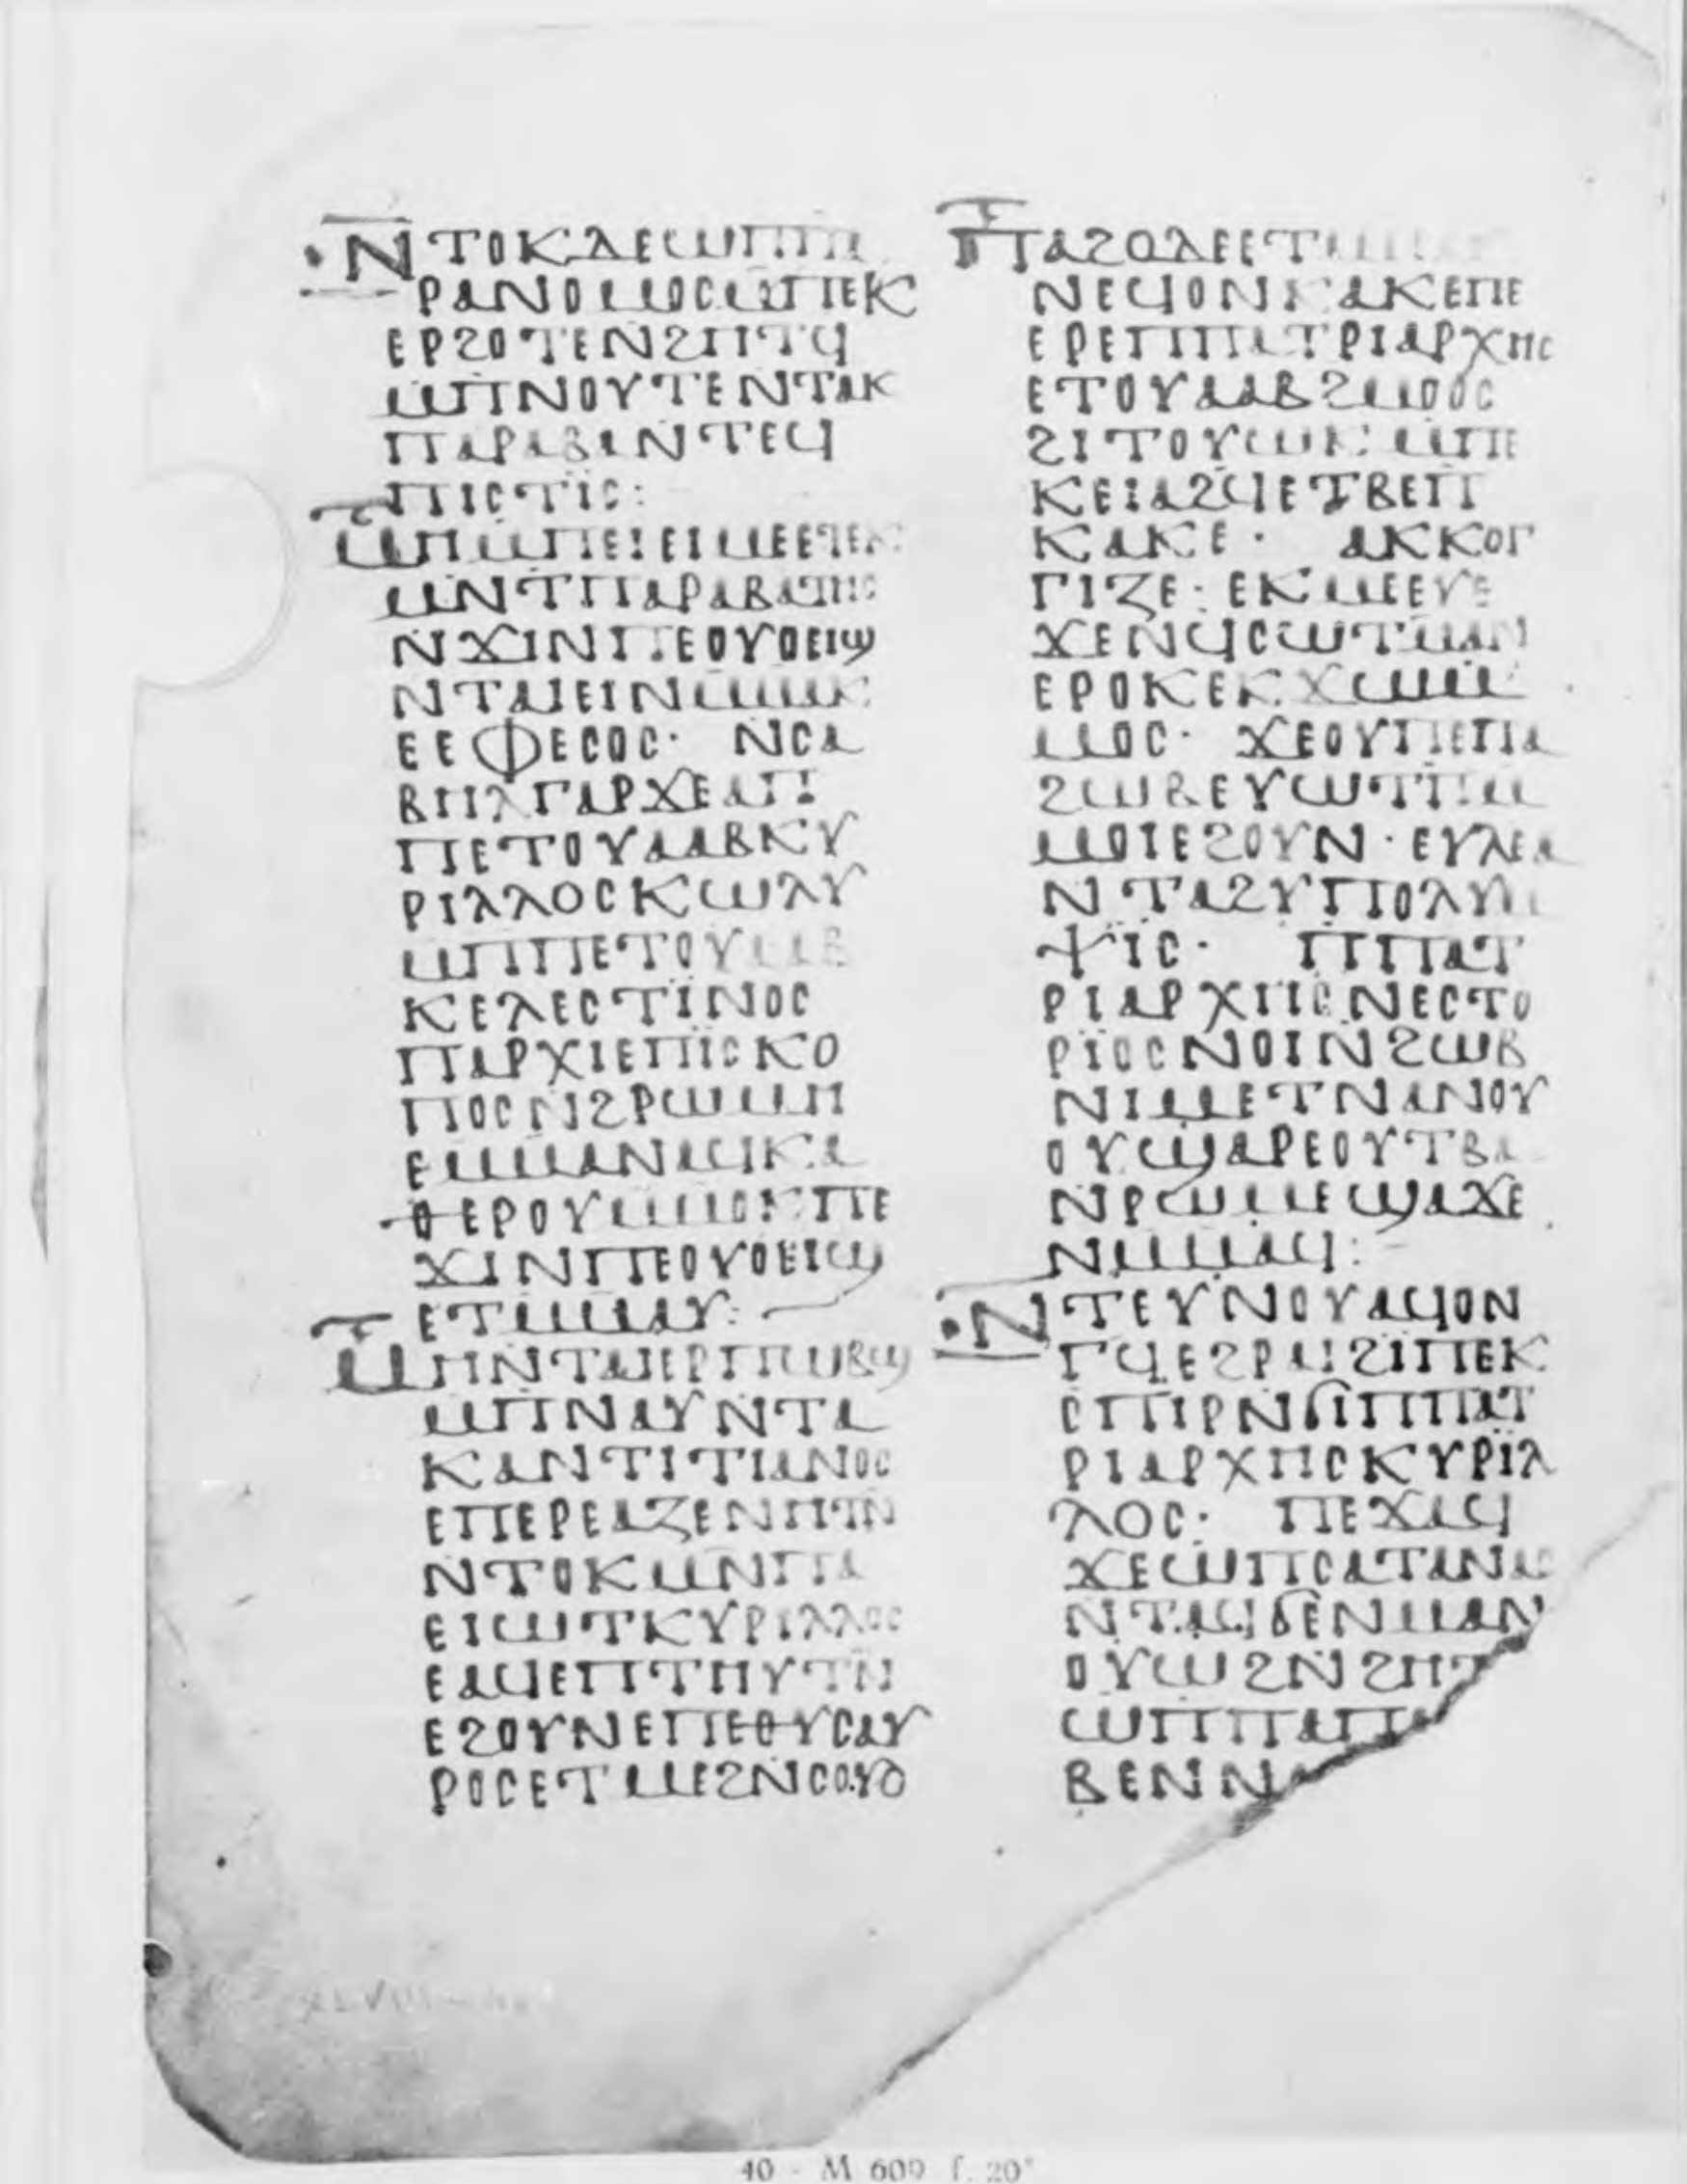 ⲚⲦⲞⲔⲇⲉⲱⲡⲡⲁ
ⲣⲁⲛⲟⲙⲟⲥⲙⲡⲉⲕ
ⲉⲣϩⲟⲧⲉⲛϩⲏⲧϥ
ⲙⲡⲛⲟⲩⲧⲉⲛⲧⲁⲕ
ⲡⲁⲣⲁⲃⲁⲛⲧⲉϥ
ⲡⲓⲥⲧⲓⲥ:
ⲙⲏⲙⲡⲉⲓⲉⲓⲙⲉⲉⲧⲉⲕ
ⲙⲛⲧⲡⲁⲣⲁⲃⲁⲧⲏⲥ
ⲛϫⲓⲛⲡⲉⲟⲩⲟⲉⲓϣ
ⲛⲧⲁⲓⲉⲓⲛⲙⲙⲁⲕ
ⲉⲉⲫⲉⲥⲟⲥ· ⲛⲥⲁ
ⲃⲏⲗⲅⲁⲣϫⲉⲁⲡⲁ
ⲡⲉⲧⲟⲩⲁⲁⲃⲕⲩ
ⲣⲓⲗⲗⲟⲥⲕⲱⲗⲩ
ⲙⲡⲡⲉⲧⲟⲩⲁⲁⲃ
ⲕⲉⲗⲉⲥⲧⲓⲛⲟⲥ
ⲡⲁⲣⲭⲓⲉⲡⲓⲥⲕⲟ
ⲡⲟⲥⲛϩⲣⲱⲙⲏ
ⲉⲙⲙⲁⲛⲁϥⲕⲁ
ⲑⲉⲣⲟⲩⲙⲙⲟⲕⲡⲉ
ϫⲓⲛⲡⲉⲟⲩⲟⲉⲓϣ
ⲉⲧⲙⲙⲁⲩ:
ⲙⲏⲛⲧⲁⲓⲉⲣⲡⲱⲃϣ
ⲙⲡⲛⲁⲩⲛⲧⲁ
ⲕⲁⲛⲧⲓⲧⲓⲁⲛⲟⲥ
ⲉⲡⲉⲣⲉⲁⲍⲉⲛⲏⲧⲛ
ⲛⲧⲟⲕⲙⲛⲡⲁ
ⲉⲓⲱⲧⲕⲩⲣⲓⲗⲗⲟⲥ
ⲉⲁϥⲉⲡⲧⲏⲩⲧⲛ
ⲉϩⲟⲩⲛⲉⲡⲉⲑⲩⲥⲁⲩ
ⲣⲟⲥⲉⲧⲙⲉϩⲛⲥⲟⲩⲟ
ⲡⲁϩⲟⲇⲉⲉⲧⲙⲙⲁⲩ
ⲛⲉϥⲟⲛⲕⲁⲕⲉⲡⲉ
ⲉⲣⲉⲡⲡⲁⲧⲣⲓⲁⲣⲭⲏⲥ
ⲉⲧⲟⲩⲁⲁⲃϩⲙⲟⲟⲥ
ϩⲓⲧⲟⲩⲱⲕ· ⲙⲡⲉ
ⲕⲉⲓⲁϩϥⲉⲧⲃⲉⲡ
ⲕⲁⲕⲉ· ⲁⲕⲕⲟⲅ
ⲅⲓⲍⲉ· ⲉⲕⲙⲉⲉⲩⲉ
ϫⲉⲛϥⲥⲱⲧⲙⲁⲛ
ⲉⲣⲟⲕⲉⲕϫⲱⲙ
ⲙⲟⲥ· ϫⲉⲟⲩⲡⲉⲡⲁ
ϩⲱⲃⲉⲩⲱⲧⲡⲙ
ⲙⲟⲓⲉϩⲟⲩⲛ· ⲉⲩⲗⲉⲁ
ⲛⲧⲁϩⲩⲡⲟⲗⲩⲙ
ⲯⲓⲥ· ⲡⲡⲁⲧ
ⲣⲓⲁⲣⲭⲏⲥⲛⲉⲥⲧⲟ
ⲣⲓⲟⲥⲛⲟⲓⲛϩⲱⲃ
ⲛⲓⲙⲉⲧⲛⲁⲛⲟⲩ
ⲟⲩϥϣⲁⲣⲉⲟⲩⲧⲃⲁ
ⲛⲣⲱⲙⲉϣⲁϫⲉ
ⲛⲙⲙⲁϥ:
ⲛⲧⲉⲩⲛⲟⲩⲁϥⲟⲛ
ⲅϥⲉϩⲣⲁⲓϩⲓⲡⲉⲕ
ⲥⲡⲓⲣⲛϭⲓⲡⲡⲁⲧ
ⲣⲓⲁⲣⲭⲏⲥⲕⲩⲣⲓⲗ
ⲗⲟⲥ· ⲡⲉϫⲁϥ
ϫⲉⲱⲡⲥⲁⲧⲁⲛⲁⲥ
ⲛⲧⲁϥϭⲉⲛⲙⲁⲛ
ⲟⲩⲱϩⲛϩⲏⲧ
ⲱⲡⲡⲁⲡ
ⲃⲉⲛⲛ
40 - M 609 f. 20ᵛ